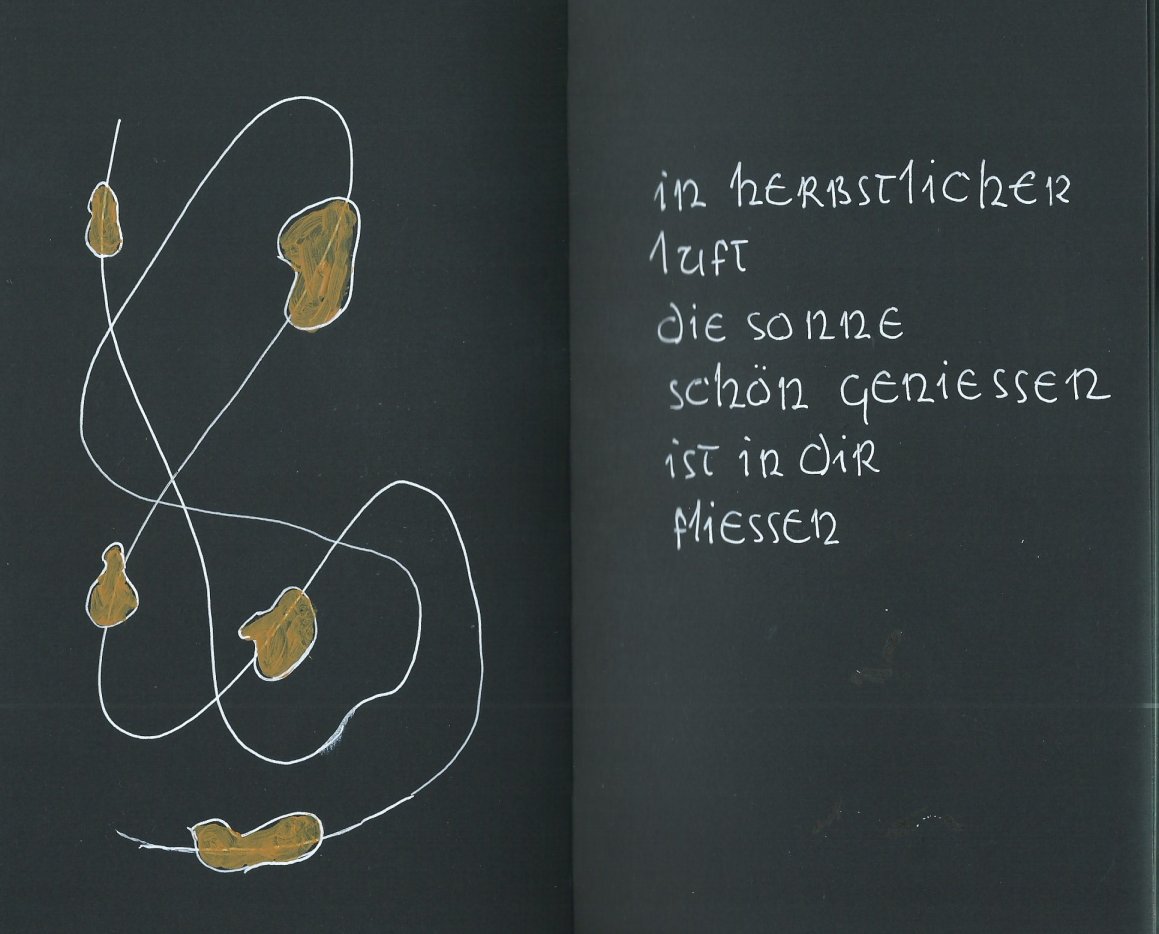 in herbstlicher
luft
die sonne
schön geniessen
ist in dir
fliessen